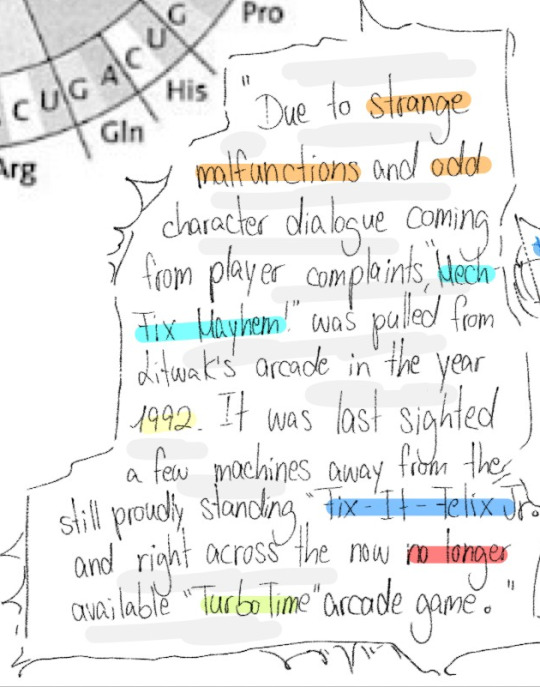 G
U
C
A
G
U
C
Pro
His
Gln
Arg
"Due to strange
malfunctions and odd
character dialogue coming
from player complaints, "Mech
Fix Mayhem!" was pulled from
Litwak's arcade in the year
1992. It was last sighted
a few machines away from the
still proudly standing "Fix-It-Felix Jr.
and right across the now no longer
available "Turbo Time" arcade game."